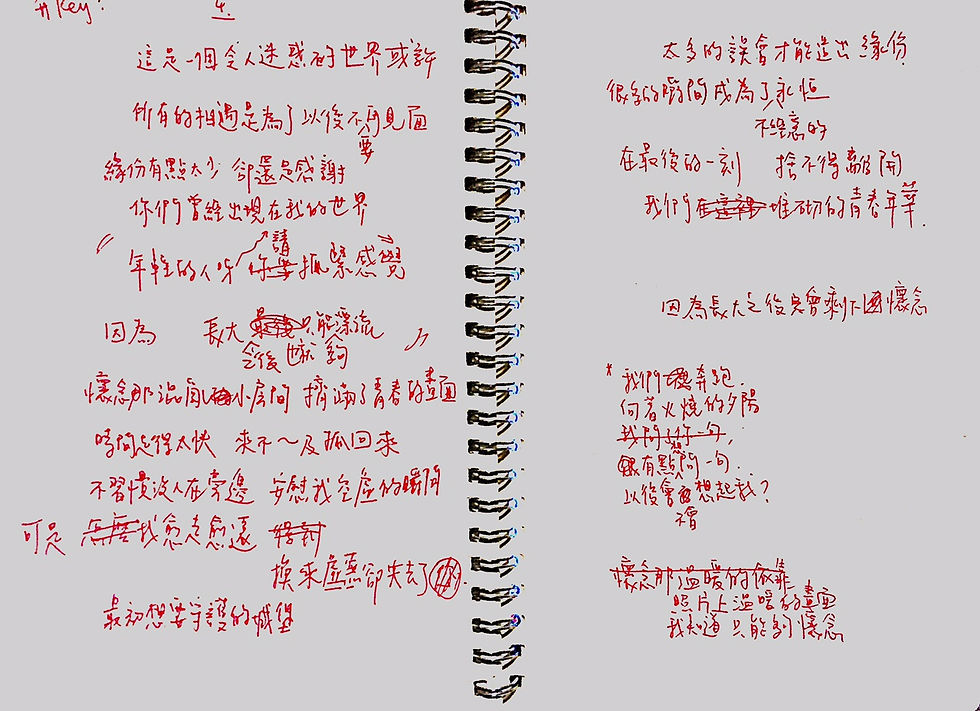 升key?
這是一個令人迷惑的世界或許
所有的相遇是為了以後不再見面
要
緣份有點太少 卻還是感謝
你們曾經出現在我的世界
請
年輕的人呀 你要抓緊感覺
因為 長大 最後只能漂流
今後 也就 夠
懷念那混亂 小房間 擠滿了青春的畫面
時間走得太快 來不~及抓回來
不習慣沒人在旁邊 安慰我空虛的瞬間
可是 怎麼我愈走愈遠
換來虛無卻失去了你
最初想要守護的城堡
太多的誤會才能造出緣份
很多的瞬間成為了永恆
不經意的
在最後的一刻 捨不得離開
我們在這裡堆砌的青春年華
因為長大之後只會剩下 懷念
* 我們 奔跑
向著火燒的夕陽
我問了你一句,
想
有點問一句
以後會 想起我?
不會
懷念那溫暖的依靠
照片上溫暖的畫面
我知道 只能夠懷念